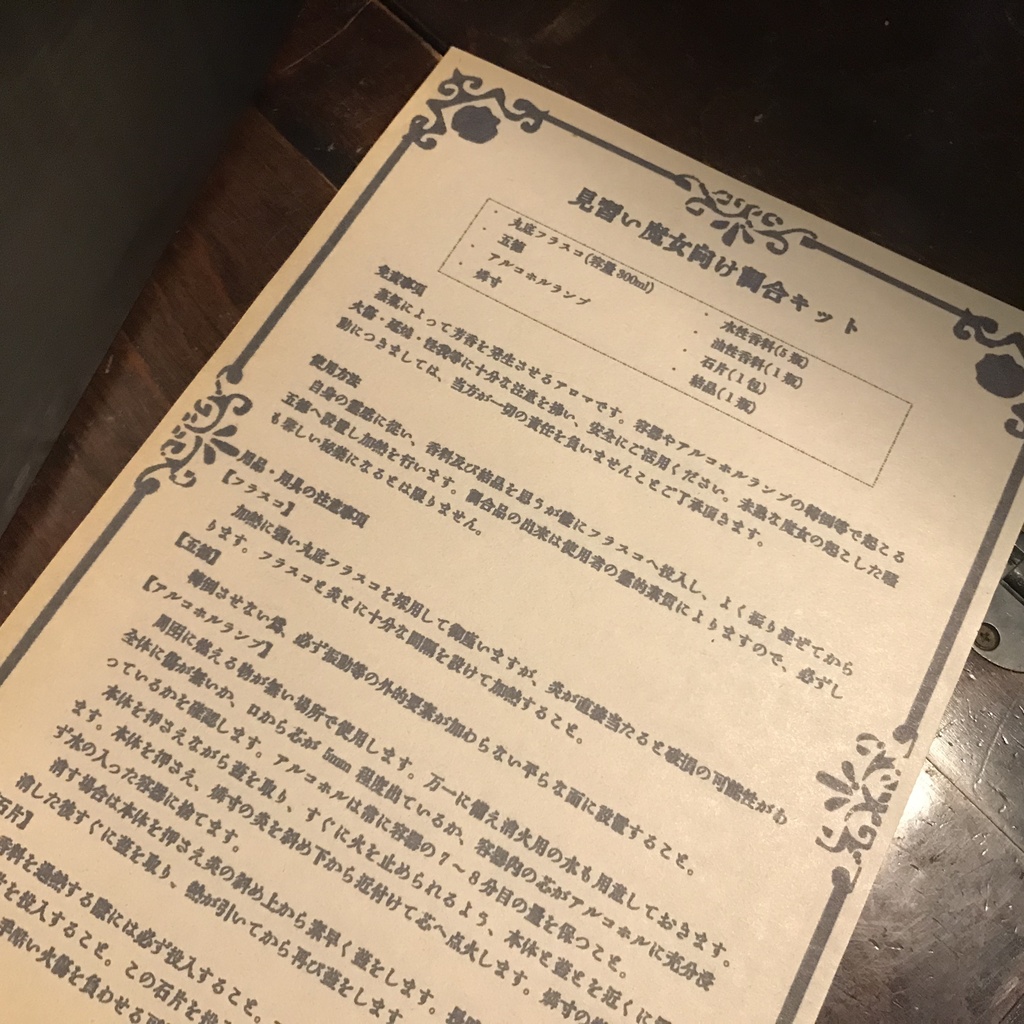 見習い魔女向け調合キット
・ 丸底フラスコ(容量300ml)
・ 五徳
・ アルコホルランプ
・ 燐寸
・ 水性香料(5瓶)
・ 油性香料(1瓶)
・ 石片(1包)
・ 結晶(1瓶)
免責事項
蒸気によって芳香を発生させるアロマです。容器やアルコホルランプの転倒等で起こる
火傷・延焼・怪我等に十分な注意を払い、安全にご活用ください。未熟な魔女の起こした騒
動につきましては、当方が一切の責任を負いませんことご了承頂きます。
使用方法
自身の霊感に従い、香料及び結晶を思うが儘にフラスコへ投入し、よく振り混ぜてから
五徳へ設置し加熱を行います。調合品の出来は使用者の霊的素質によりますので、必ずし
も楽しい秘薬になるとは限りません。
用品・用具の注意事項
【フラスコ】
加熱に強い丸底フラスコを採用して御座いますが、炎が直接当たると破損の可能性があ
ります。フラスコと炎とに十分な間隔を設けて加熱すること。
【五徳】
転倒させない為、必ず振動等の外的要素が加わらない平らな面に設置すること。
【アルコホルランプ】
周囲に燃える物が無い場所で使用します。万一に備え消火用の水も用意しておきます。
全体に傷が無いか、口から芯が5mm程度出ているか、容器内の芯がアルコホルに充分浸
っているかを確認します。アルコホルは常に容器の7～8分目の量を保つこと。
本体を押さえながら蓋を取り、すぐに火を止められるよう、本体と蓋とを近くに
ます。本体を押さえ、燐寸の炎を斜め下から近付けて芯へ点火します。燐寸の
ず水の入った容器に捨てます。
消す場合は本体を押さえ炎の斜め上から素早く蓋をします。
消した後すぐに蓋を取り、熱が引いてから再び蓋をします
石片】
香料を過熱する際には必ず投入すること。
を投入すること。この石片を
手酷い火傷を負わせる